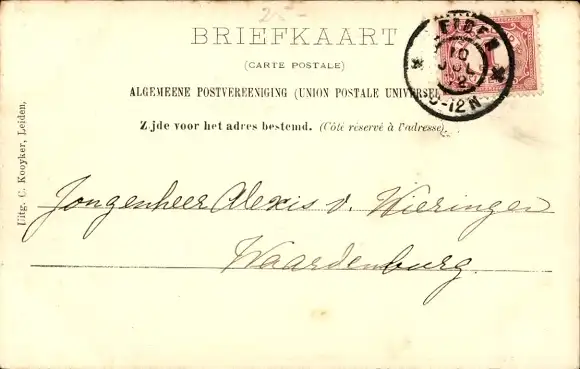 25-
BRIEFKAART
(CARTE POSTALE)
ALGEMEENE POSTVEREENIGING (UNION POSTALE UNIVERSE
Zijde voor het adres bestemd. (Côté réservé à l'adresse).
LEIDEN
10
JUL
-12N
Jongenheer Alexis v. Wieringen
Waardenburg.
Uitg. C. Kooyker, Leiden.